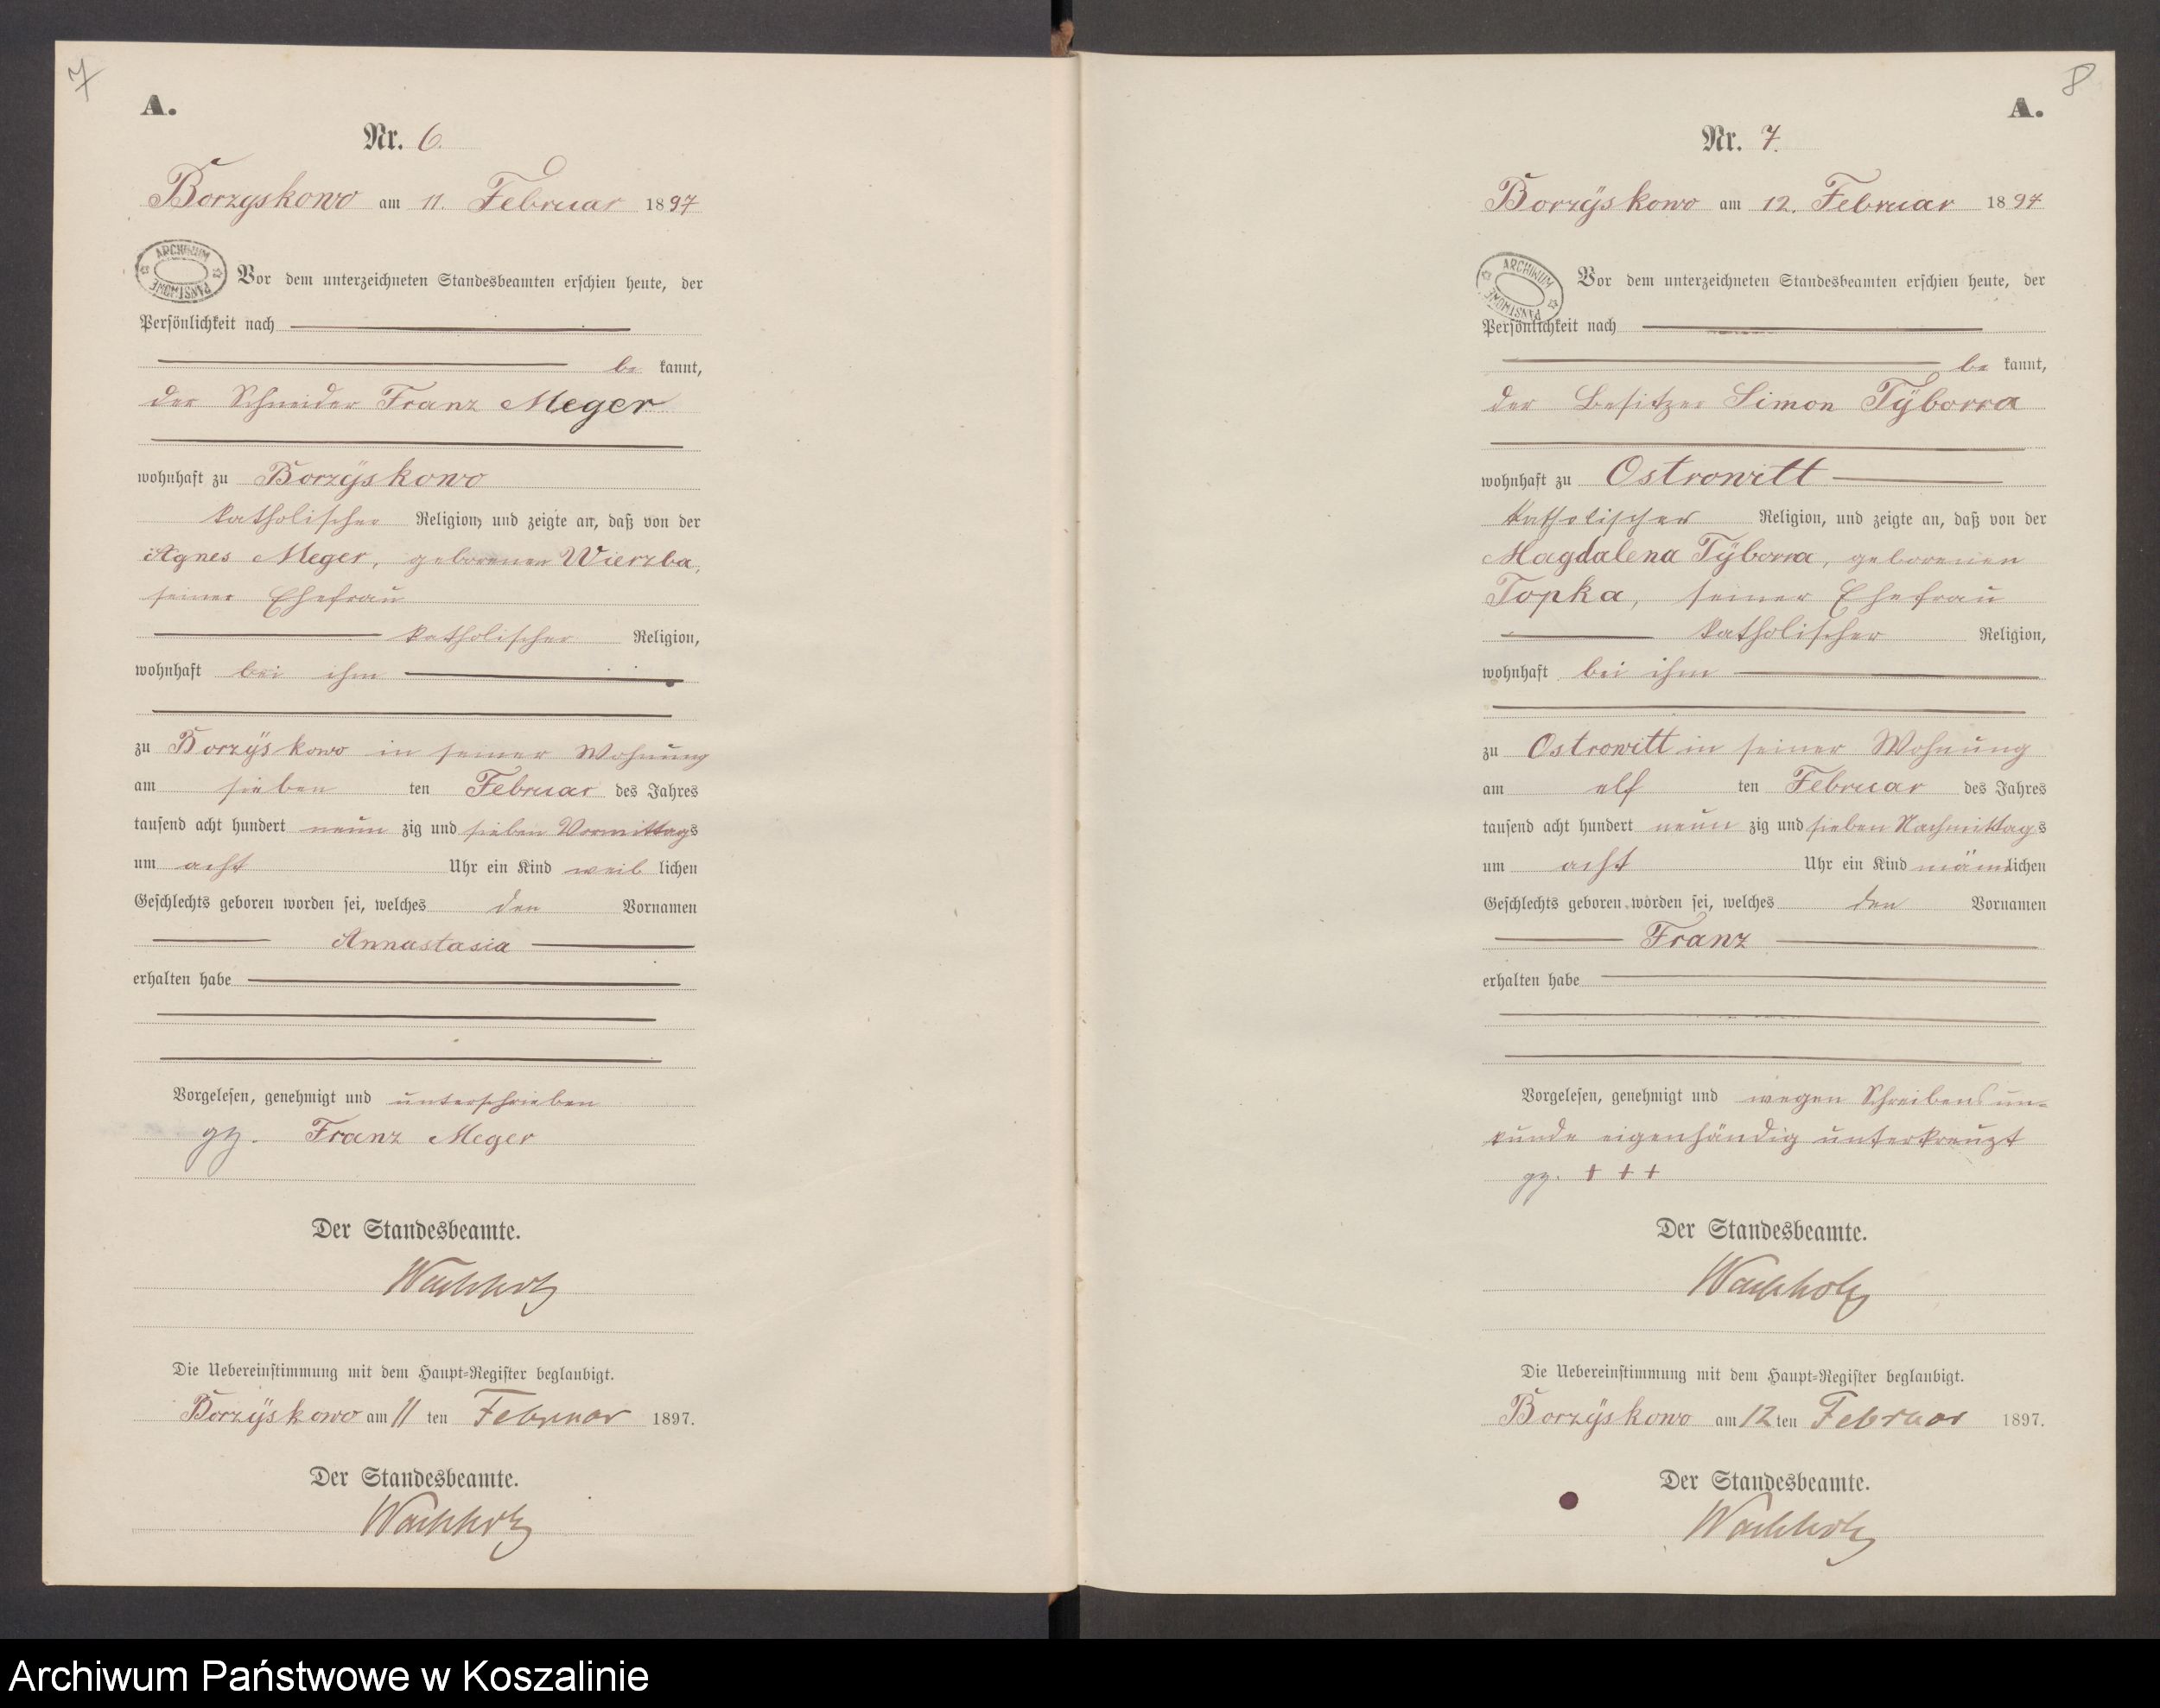 7
A.
Nr. 6.
Borzyskowo am 11. Februar 1897
ARCHIWUM PAŃSTWOWE
Vor dem unterzeichneten Standesbeamten erschien heute, der
Persönlichkeit nach
be kannt,
der Schneider Franz Meger
wohnhaft zu Borzÿskowo
katholischer Religion, und zeigte an, daß von der
Agnes Meger, geborenen Wierzba,
seiner Ehefrau
katholischer Religion,
wohnhaft bei ihm
zu Borzÿskowo in seiner Wohnung
am sieben ten Februar des Jahres
tausend acht hundert neun zig und sieben Vormittags
um acht Uhr ein Kind weib lichen
Geschlechts geboren worden sei, welches den Vornamen
Annastasia
erhalten habe
Vorgelesen, genehmigt und unterschrieben
gz. Franz Meger
Der Standesbeamte.
Wachholz
Die Uebereinstimmung mit dem Haupt-Register beglaubigt.
Borzÿskowo am 11 ten Februar 1897.
Der Standesbeamte.
Wachholz
8
A.
Nr. 7.
Borzÿskowo am 12. Februar 1897
ARCHIWUM PAŃSTWOWE
Vor dem unterzeichneten Standesbeamten erschien heute, der
Persönlichkeit nach
be kannt,
der Besitzer Simon Tÿborra
wohnhaft zu Ostrowitt
katholischer Religion, und zeigte an, daß von der
Magdalena Tÿborra, geborenen
Topka, seiner Ehefrau
katholischer Religion,
wohnhaft bei ihm
zu Ostrowitt in seiner Wohnung
am elf ten Februar des Jahres
tausend acht hundert neun zig und sieben Nachmittags
um acht Uhr ein Kind männlichen
Geschlechts geboren worden sei, welches den Vornamen
Franz
erhalten habe
Vorgelesen, genehmigt und wegen Schreibensun-
kunde eigenhändig unterkreuzt
gz. + + +
Der Standesbeamte.
Wachholz
Die Uebereinstimmung mit dem Haupt-Register beglaubigt.
Borzÿskowo am 12 ten Februar 1897.
Der Standesbeamte.
Wachholz
Archiwum Państwowe w Koszalinie